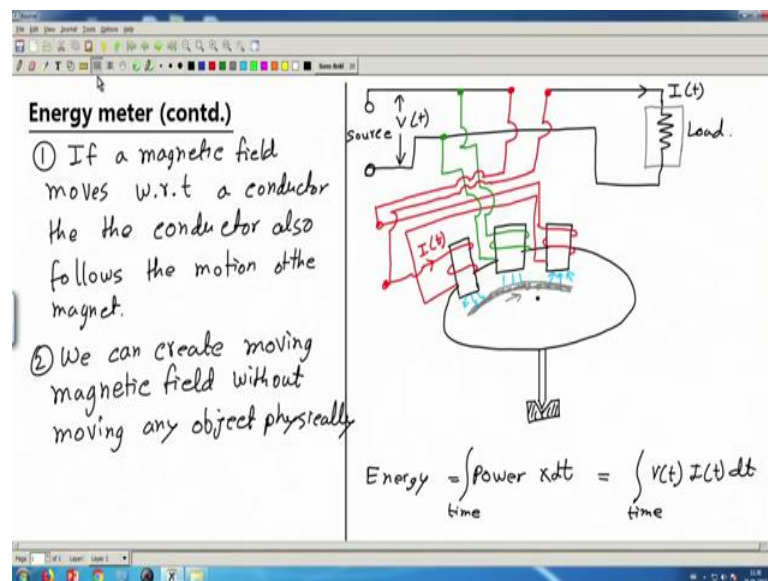 File Edit View Journal Tools Options Help
Energy meter (contd.)
① If a magnetic field
moves w.r.t a conductor
the the conductor also
follows the motion of the
magnet.
② We can create moving
magnetic field without
moving any object physically
I(t)
V(t)
Source
Load.
I(t)
Energy = ∫ Power x dt = ∫ V(t) I(t) dt
time time
Page 1 of 1 Layer: Layer 1